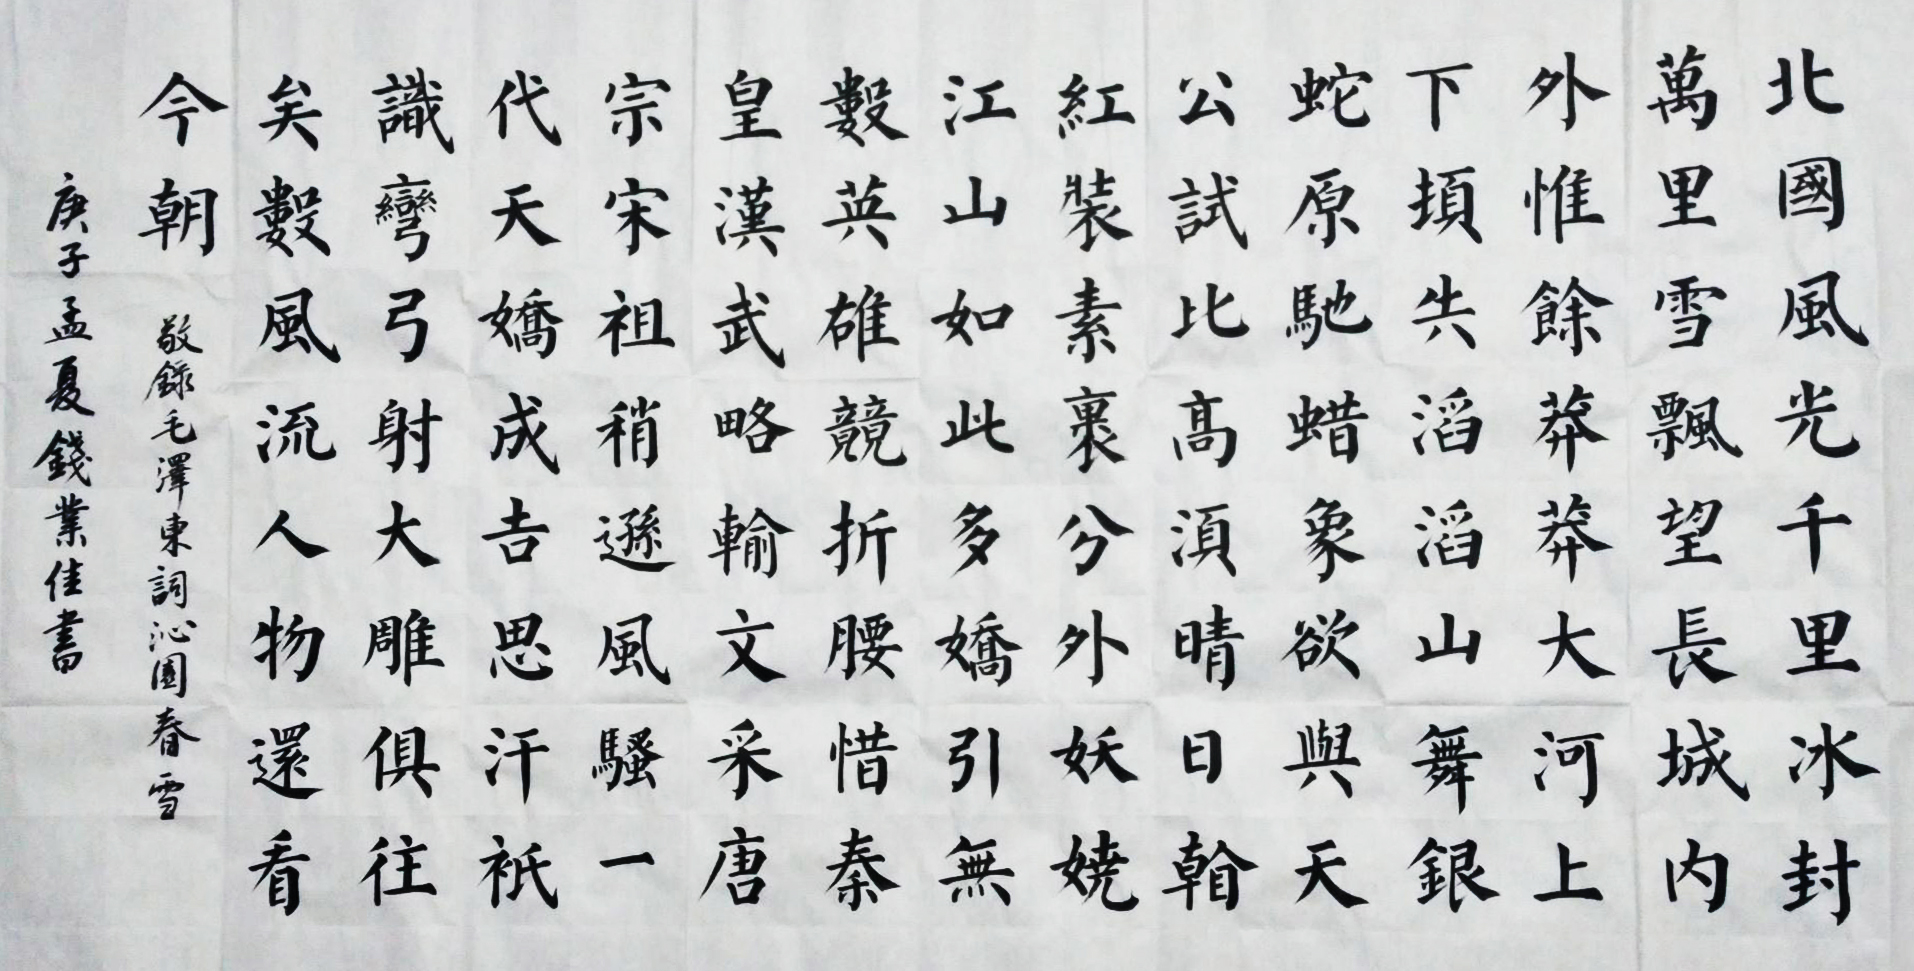 北國風光千里冰封
萬里雪飄望長城内
外惟餘莽莽大河上
下頓失滔滔山舞銀
蛇原馳蜡象欲與天
公試比髙湏晴日看
紅裝素裹分外妖嬈
江山如此多嬌引無
數英雄競折腰惜秦
皇漢武略輸文采唐
宗宋祖稍遜風騷一
代天嬌成吉思汗衹
識彎弓射大雕俱往
矣數風流人物還看
今朝
敬錄毛澤東詞沁園春雪
庚子孟夏錢業佳書